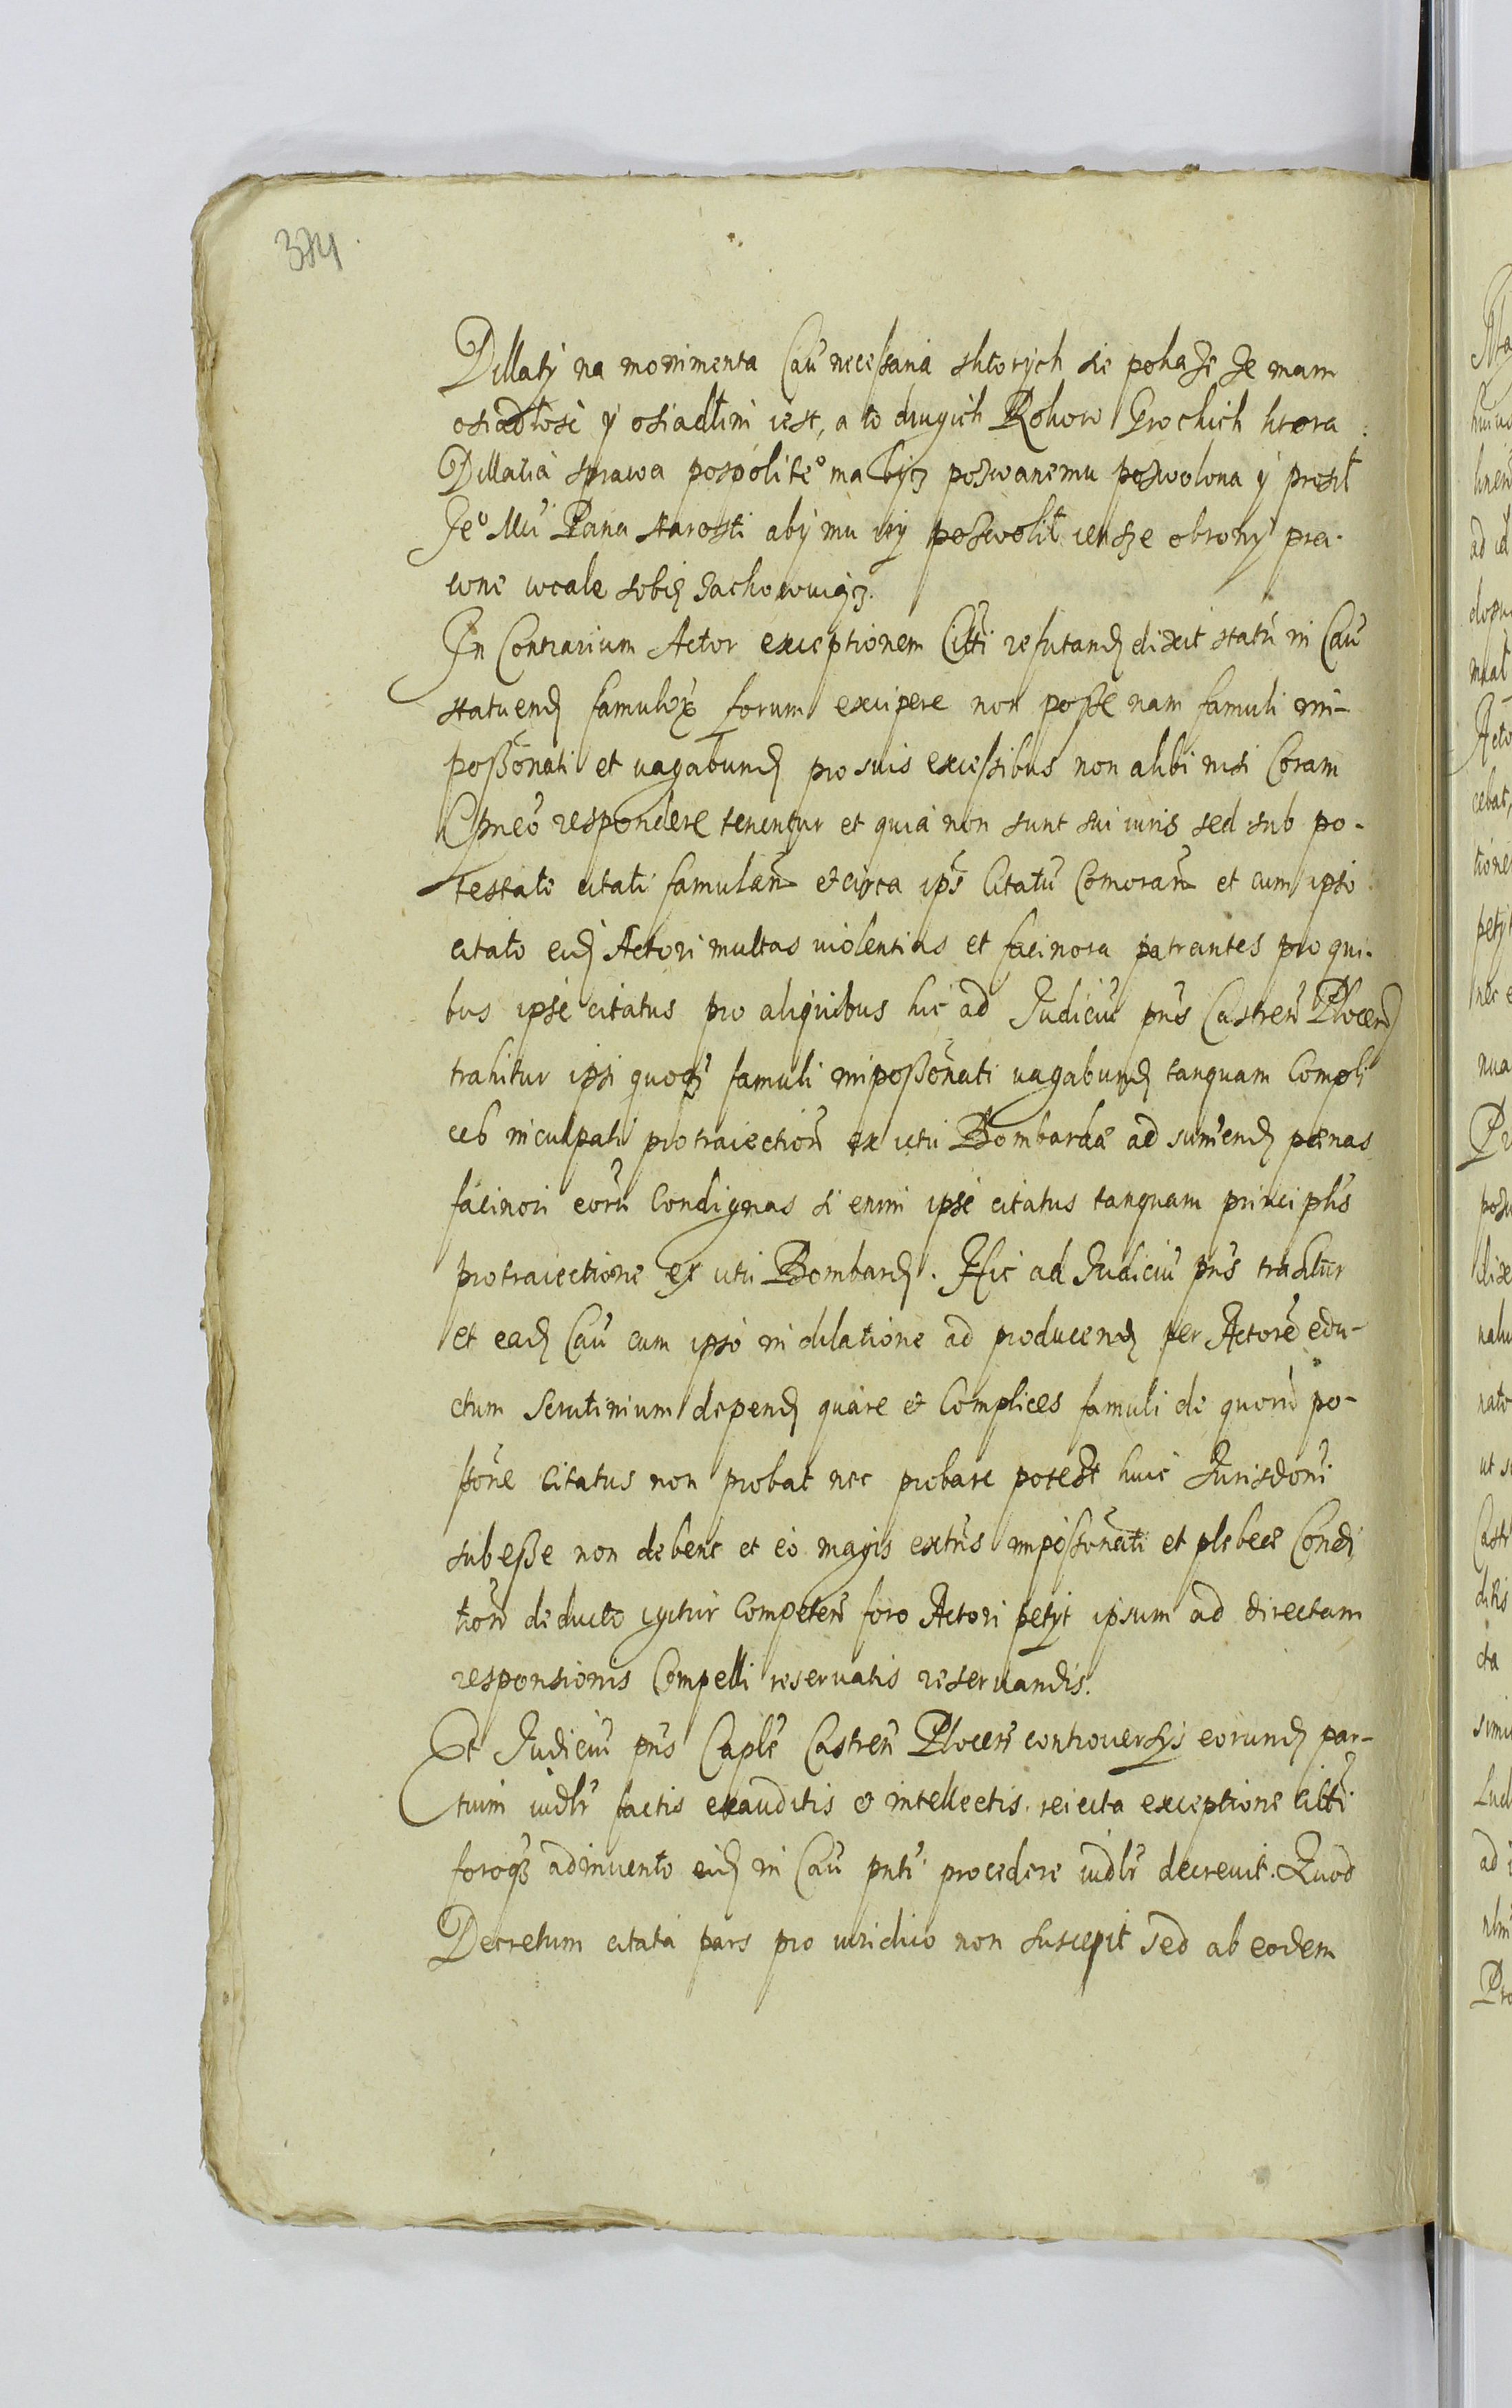 384.
Dillatÿ na monimenta Cau necessaria sktorych sie pokaże że mam
osiadłosć ÿ osiadłim iest, a to drugich Rokow Grockich ktora
Dillatia sprawa pospolite° ma bycz poswanemu poswolona ÿ prosił
Je° Mci Pana starosti abÿ mu iey poswolił iensze obronÿ pra-
wne wcale sobie zachowuiącz.
In Contrarium Actor exceptionem Citti refutand dixit statu in Cau
statuend famulor forum excipere non posse nam famuli im-
possonati et vagabund pro suis excessibus non alibi nisi Coram
Cptneo respondere tenentur et quia non sunt sui iuris sed sub po-
testate citati famulan et circa ips Citatu Comoran et cum ipso
citato eid Actori multas violentias et facinora patrantes pro qui-
bus ipse citatus pro aliquibus hic ad Judiciu pns Castren Plocen
trahitur ipsi quoqz famuli impossonati vagabund tanquam Compli
ces inculpati pro traiection ex ictu Bombardae ad sumend poenas
facinori eoru Condignas si enim ipse citatus tanquam principlis
pro traiectione ex ictu Bombard. Hic ad Judiciu pns trahitur
et ead Cau cum ipso in dilatione ad producend per Actore edu-
ctum Scrutinium depend quare et Complices famuli de quoru po-
ssone citatus non probat nec probare potest huic Jurisdoni
subesse non debent et eo magis extus impossonati et plebeae Condi
tion deducto igitur Competen foro Actori petÿt ipsum ad directam
responsionis Compelli reservatis reservandis.
Et Judiciu pns Caple Castren Plocen controversÿs eorund par-
tium iudlr factis exauditis et intellectis. reiecta exceptione Citti
foroqz adinvento eid in Cau pnti procedere iudlr decrevit. Quod
Decretum citata pars pro iuridico non suscepit sed ab eodem